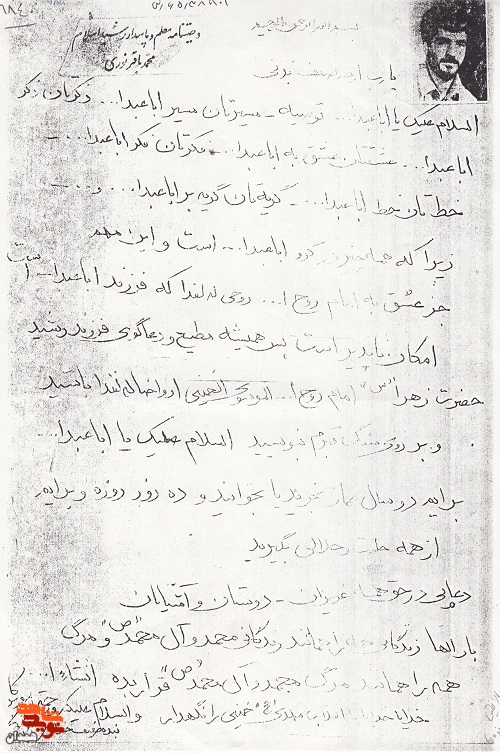 بسم الله الرحمن الرحیم
وصیتنامه معلم و پاسدار شهید اسلام
محمد باقر نوری
یا رب ارحم ضعف بدنی
السلام علیک یا اباعبدا... توصیه - مسیرتان مسیر اباعبدا... ذکرتان ذکر
اباعبدا... عشقتان عشق به اباعبدا... فکرتان فکر اباعبدا... -
خطتان خط اباعبدا... - گریه‌تان گریه بر اباعبدا... و...
زیرا که همه چیز در گرو اباعبدا... است و این مهم
جز عشق به امام روح ا... روحی له الفدا که فرزند اباعبدا... است
امکان ناپذیر است پس همیشه مطیع و دعاگوی فرزند رشید
حضرت زهرا "س" امام روح ا... الموسوی الخمینی ارواحنا له الفدا باشید
و بر روی سنگ قبرم بنویسید السلام علیک یا اباعبدا...
برایم دو سال نماز بخرید یا بخوانید و ده روز روزه و برایم
از همه حلیت و حلالی بگیرید
دعایی در حق همه عزیزان - دوستان و آشنایان
بارالها زندگانی همه را همانند زندگانی محمد و آل محمد "ص" و مرگ
همه را همانند مرگ محمد و آل محمد "ص" قرار بده انشاء ا...
خدایا خدایا تا انقلاب مهدی خمینی را نگهدار والسلام علیکم